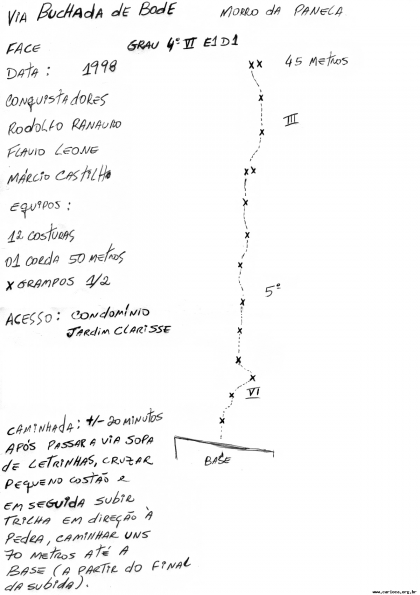 VIA BUCHADA DE BODE MORRO DA PANELA
FACE GRAU 4º VI E1 D1
DATA: 1998 45 METROS
CONQUISTADORES
RODOLFO RANAURO III
FLAVIO LEONE
MÁRCIO CASTILHO
EQUIPOS:
12 COSTURAS
01 CORDA 50 METROS
X GRAMPOS 1/2 5º
ACESSO: CONDOMÍNIO
JARDIM CLARISSE
VI
CAMINHADA: +/- 20 MINUTOS
APÓS PASSAR A VIA SOPA
DE LETRINHAS, CRUZAR BASE
PEQUENO COSTÃO E
EM SEGUIDA SUBIR
TRILHA EM DIREÇÃO À
PEDRA, CAMINHAR UNS
70 METROS ATÉ A
BASE (A PARTIR DO FINAL
DA SUBIDA).
www.carioca.org.br